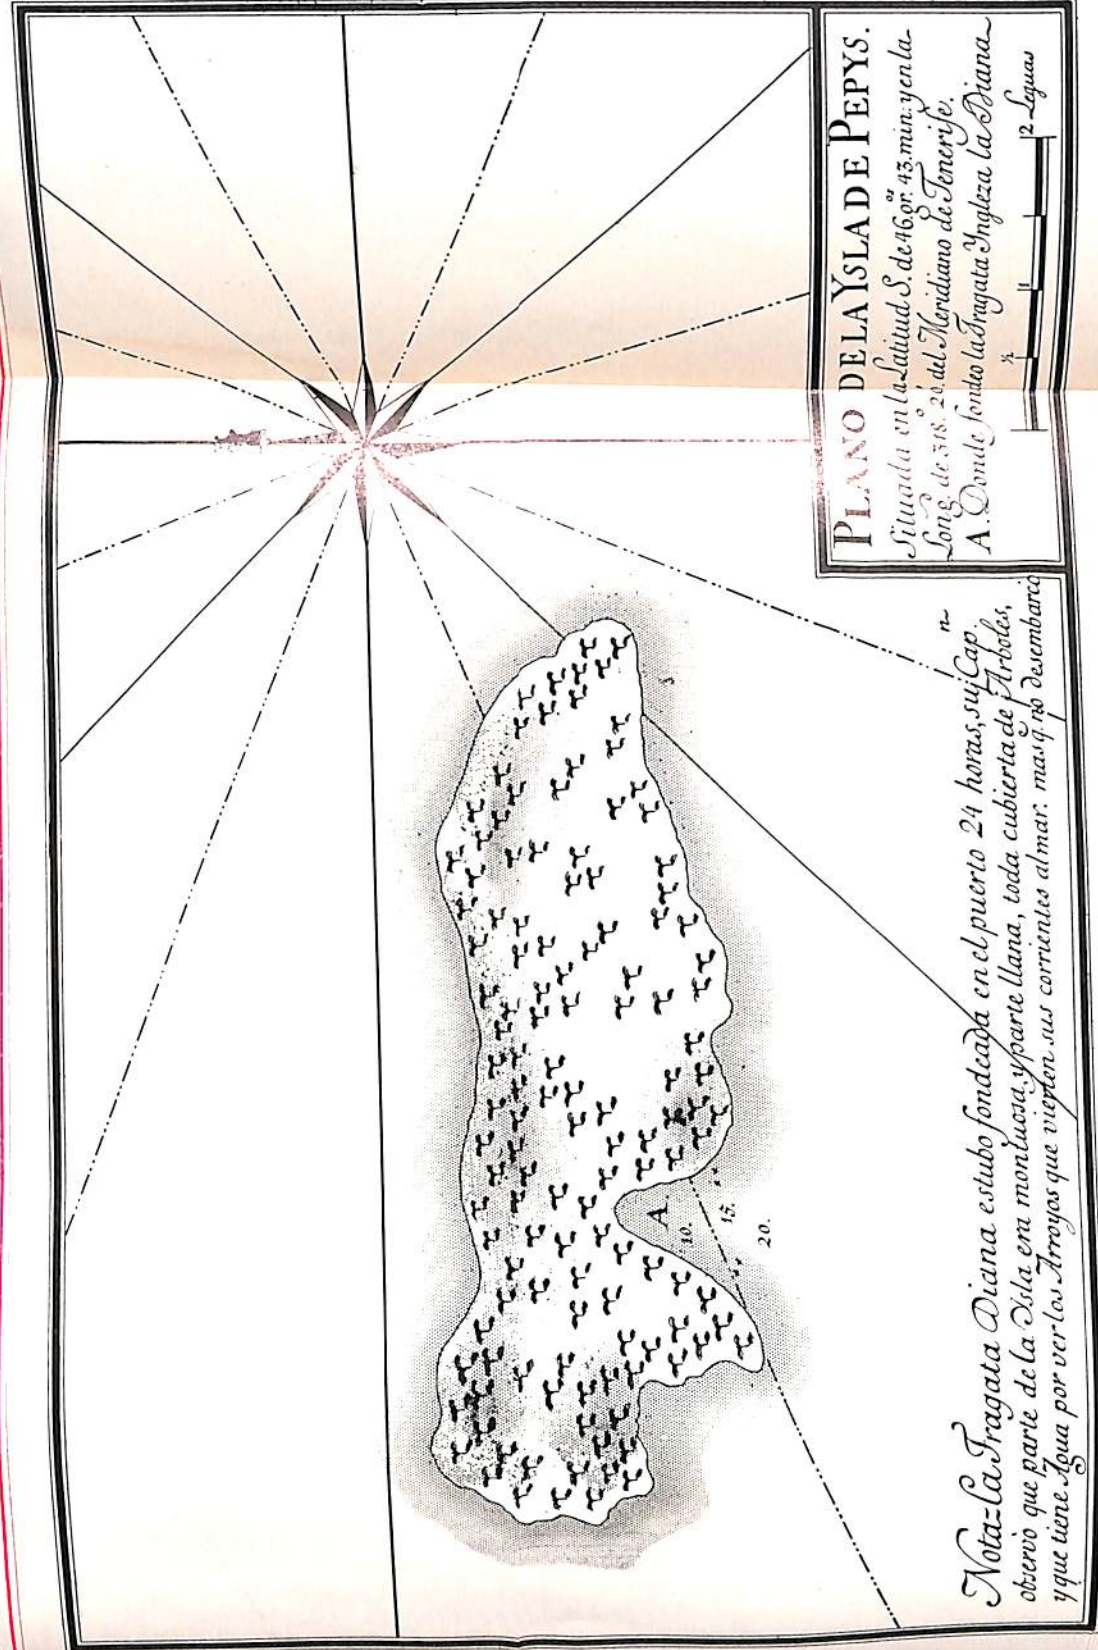 PLANO DE LA YSLA DE PEPYS.
Situada en la Latud S. de 46. gr.os 43. min. y en la
Long. de 318.° 20.' del Meridiano de Tenerife.
A. Donde fondeo la Fragata Ingleza la Diana
½ 1 2 Leguas
A.
10.
15.
20.
Nota=La Fragata Diana estubo fondeada en el puerto 24 horas, su Cap.n
observó que parte de la Isla era montuosa, y parte llana, toda cubierta de Arboles,
y que tiene Agua por ver los Arroyos que vierten sus corrientes al mar: mas q. no desembarcó